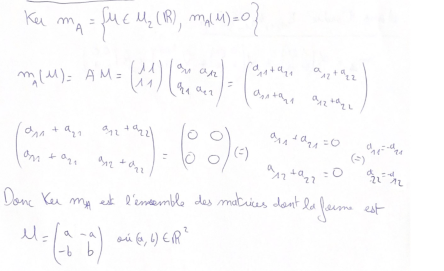 Ker m_A = {M ∈ M₂(ℝ), m_A(M) = 0}
m_A(M) = A M = (1 1 / 1 1) (a₁₁ a₁₂ / a₂₁ a₂₂) = (a₁₁+a₂₁ a₁₂+a₂₂ / a₁₁+a₂₁ a₁₂+a₂₂)
(a₁₁+a₂₁ a₁₂+a₂₂ / a₁₁+a₂₁ a₁₂+a₂₂) = (0 0 / 0 0) (=) a₁₁+a₂₁=0 / a₁₂+a₂₂=0 (=) a₁₁=-a₂₁ / a₂₂=-a₁₂
Donc Ker m_A est l'ensemble des matrices dont la forme est
M = (a -a / -b b) où (a, b) ∈ ℝ²